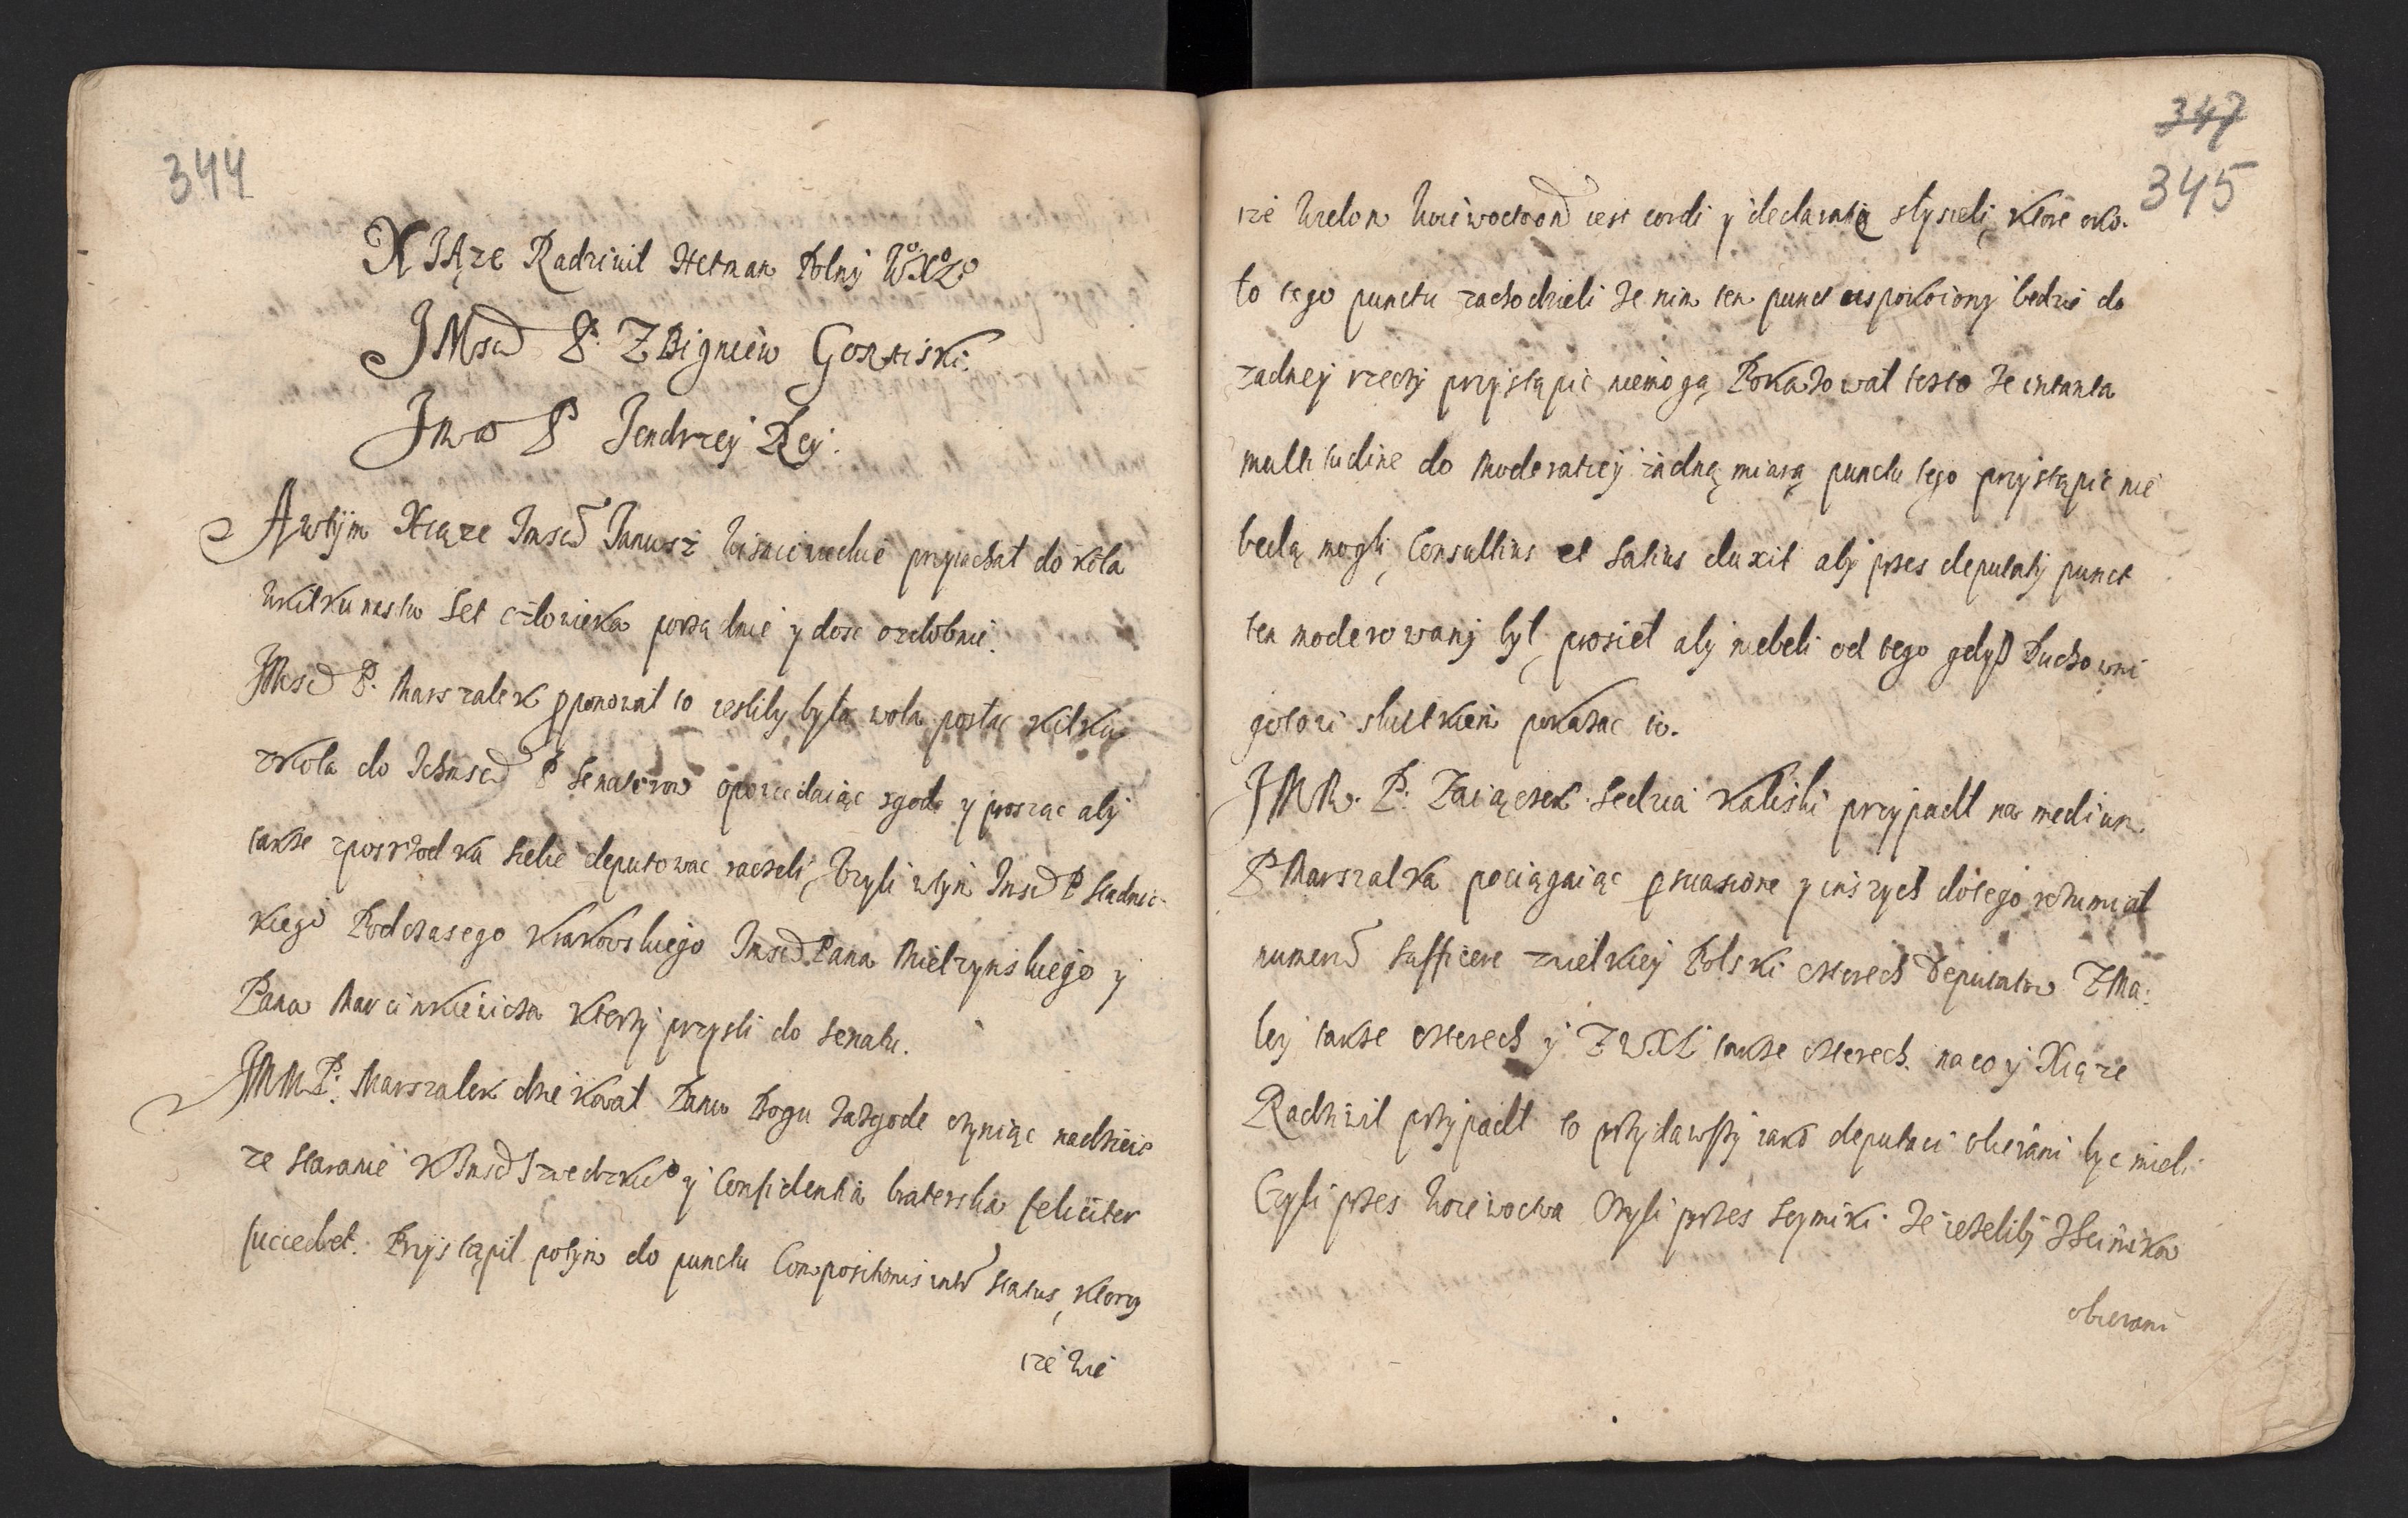 344
XIĄze Radziwil Hetman Polny W°X°L°
JMscd P. ZBigniew Goraiski.
Jmcd P Jendrzey Rey.
A wtÿm Xiąze Jmscd Janusz Wisniewecki przyiachał do koła
wkilkunastu set człowieka porządnie y dosc ozdobnie.
JMscd P. Marszalek pponowal to iesliby była wola posłac kilku
zkoła do Ichmscd P Senatorow opowiedaiąc zgode y prosząc aby
takze zposrzodka siebie deputowac raczeli, Wzyli wtym Jmscd P Sladnic-
kiego Podczasego Krakowskiego Jmscd Pana Mielzynskiego y
Pana Marcinkiewicza ktorzy przysli do Senatu.
JMMP. Marszalek dziekował Panu Bogu zazgode czyniąc nadzieie
ze staranie KJmscd Szwedzkie° y Confidentia braterska feliciter
succedet. Przystąpil potym do punctu Compositionis intr Status, ktory
ize wie
347
345
ize wielom Woiewoctwom iest cordi y declaratią slyszeli, ktore oko-
ło tego punctu zachodzieli ze nim ten punct uspokoiony bedzie do
zadney rzeczy przystąpic niemogą Pokazował tesz to ze in tanta
multitudine do Moderatiey zadną miarą punctu tego przystąpic nie
bedą mogli, Consultius et Satius duxit aby przes deputaty punct
ten moderowany był, prosieł aby niebeli od tego gdysz Duchowni
gotowi skutkiem pokazac to.
JMM. P. Zaiączek Sedzia Kaliski przypadł na medium
P Marszalka pociągaiąc psuasione y inszych dotego rozumiał
numerum Sufficere zwielkiey Polski czterech Deputatow ZMa:
ley takze czterech y ZWXL takze czterech. na co y Xiąze
Radziwil przypadł to przydawszy iako deputaci obierani byc mieli
Czyli przes Woiewoctwa Czyli przes Seymiki. Ze iezeliby
obierani